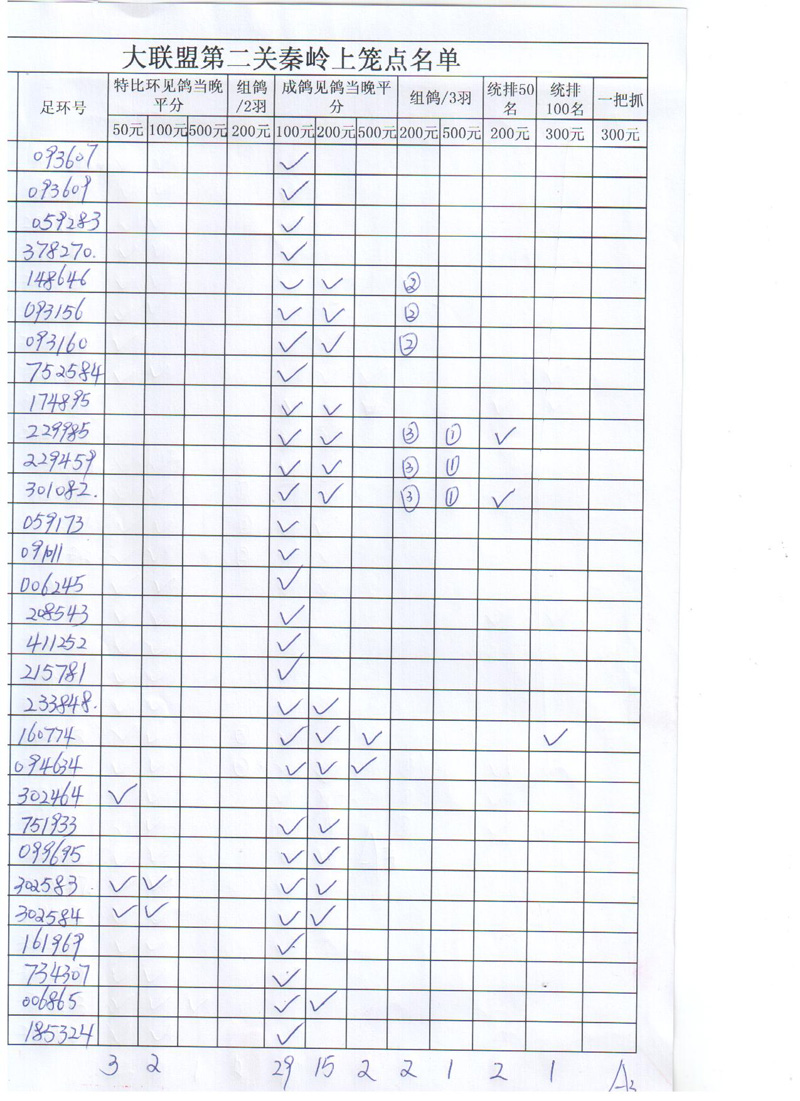 大联盟第二关秦岭上笼点名单
足环号 特比环见鸽当晚平分 组鸽/2羽 成鸽见鸽当晚平分 组鸽/3羽 统排50名 统排100名 一把抓
50元 100元 500元 200元 100元 200元 500元 200元 500元 200元 300元 300元
093607 ✓
093609 ✓
059283 ✓
378270. ✓
148646 ✓ ✓ ②
093156 ✓ ✓ ②
093160 ✓ ✓ ②
752584 ✓
174895 ✓ ✓
229985 ✓ ✓ ③ ① ✓
229459 ✓ ✓ ③ ①
301082. ✓ ✓ ③ ① ✓
059173 ✓
✓
006245 ✓
208543 ✓
411252 ✓
215781 ✓
233848. ✓ ✓
160774 ✓ ✓ ✓ ✓
094634 ✓ ✓ ✓
302464 ✓
751933 ✓ ✓
099695 ✓ ✓
302583. ✓ ✓ ✓ ✓
302584 ✓ ✓ ✓ ✓
161969 ✓
734307 ✓
006865 ✓ ✓
185324 ✓
3 2 29 15 2 2 1 2 1 A2